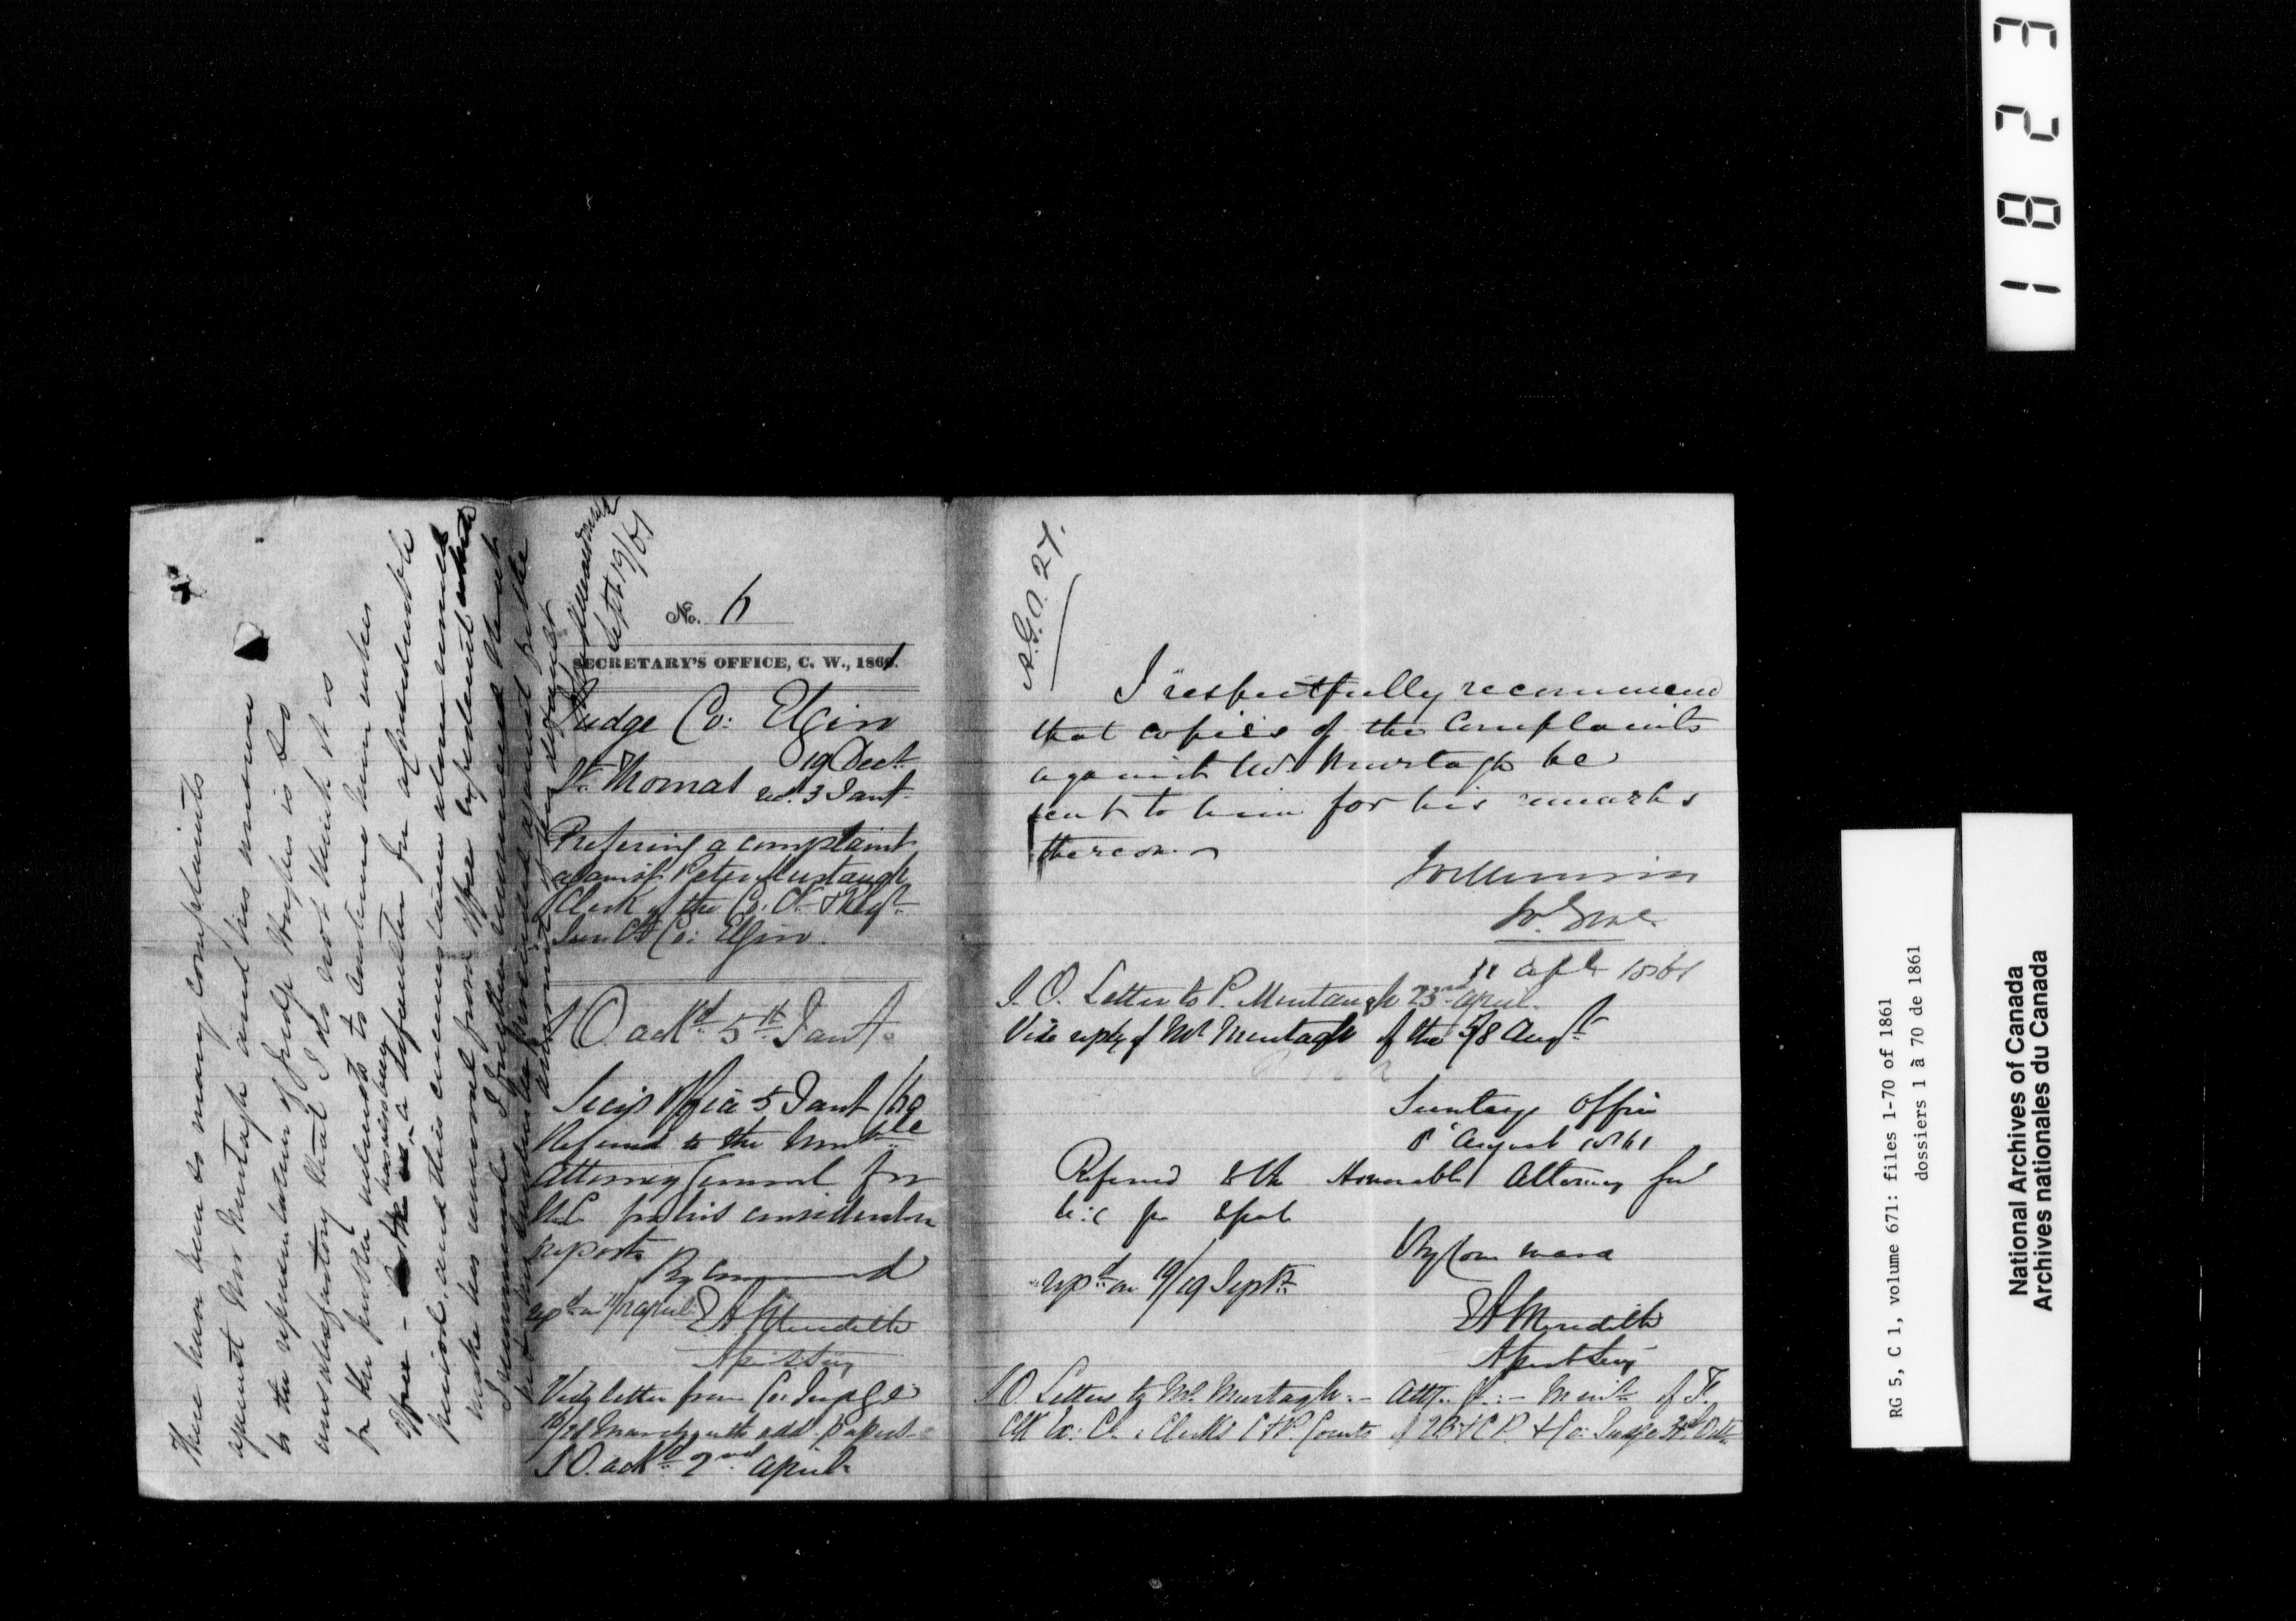 There have been so many complaints
against Mr Murtagh and his answer
to the representations of Judge Hughes is so
unsatisfactory that I do not think it is
for the public interests to continue him in his
Office – he is a defaulter for a considerable
period, and this circumstance alone would
make his removal from office expedient
I recommend
Sept 19/61
No. 6
SECRETARY'S OFFICE, C. W., 1861.
Judge Co: Elgin
St. Thomas 19 Decr.
rec. 3 Jany.
Refering a complaint
against Peter Murtaugh
Clerk of the Co: Ct. & Regr.
Surr Ct Co: Elgin.
S O. ackd. 5th Jany.
Secys Office 5 Jany
Referred to the Honble
Attorney General for
U.C. for his consideration
report
By command
EA Meredith
Asst Secy
Vide letter from Co: Judge
March with add. papers
S O. ackd 2nd April
A.G.O. 27.
I respectfully recommend
that copies of the Complaints
against Mr. Murtagh be
sent to him for his remarks
thereon
11 Apl 1861
S. O. Letter to P. Murtaugh 23rd April.
Vide reply of Mr Murtagh of the 5/8 Augt.
Secretarys Office
8 August 1861
Referred to the Honorable Attorney Genl
U.C for report
By Command
repd on 19/19 Septr.
EA Meredith
Asst Secy
S O Letters to Mr. Murtagh. – Atty. Gl: – Minr of F.
Clk Co: Ct. : Clerks C & P. Courts of QB & C P. & Co: Judge
1823
RG 5, C 1, volume 671: files 1-70 of 1861
dossiers 1 à 70 de 1861
National Archives of Canada
Archives nationales du Canada